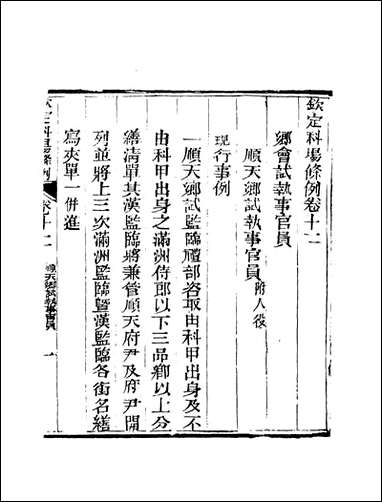 欽定科場條例卷十二
鄉會試執事官員
順天鄉試執事官員附人役
現行事例
一順天鄉試監臨禮部咨取由科甲出身及不
由科甲出身之滿洲侍郎以下三品卿以上分
繕清單其漢監臨將兼管順天府尹及府尹開
列並將上三次滿洲監臨暨漢監臨各銜名繕
寫夾單一併進
欽定科場條例 卷十二 順天鄉試執事官員 一